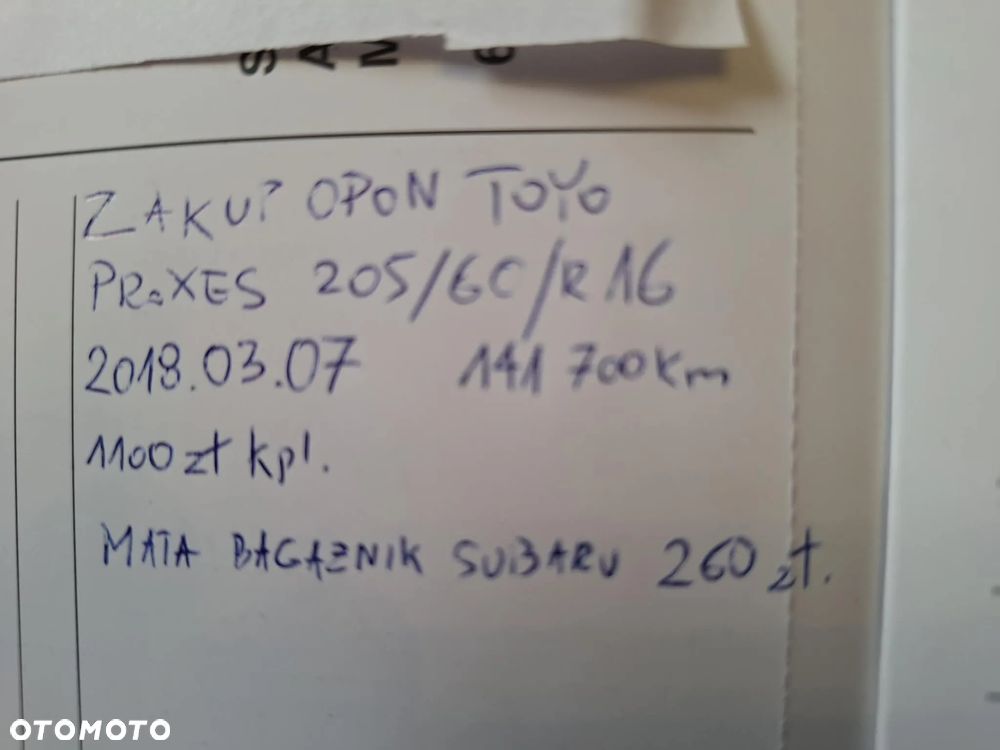 S A M 6
ZAKUP OPON TOYO
PROXES 205/60/R16
2018.03.07 141 700km
1100 zł kpl.
MATA BAGAŻNIK SUBARU 260 zł.
OTOMOTO